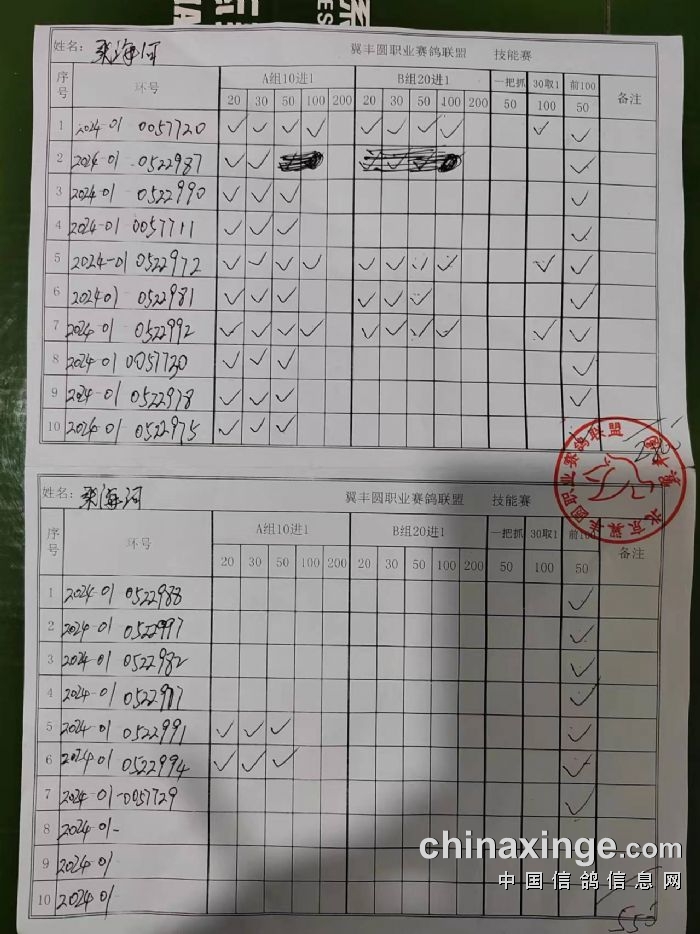 姓名: 张海河 翼丰圆职业赛鸽联盟 技能赛
序号 环号 A组10进1 B组20进1 一把抓 30取1 前100 备注
20 30 50 100 200 20 30 50 100 200 50 100 50
1 2024-01 0057720 ✓ ✓ ✓ ✓ ✓ ✓ ✓ ✓ ✓ ✓
2 2024-01 0522987 ✓ ✓ ✓
3 2024-01 0522990 ✓ ✓ ✓ ✓
4 2024-01 0057711 ✓ ✓ ✓ ✓
5 2024-01 0522972 ✓ ✓ ✓ ✓ ✓ ✓ ✓ ✓ ✓ ✓
6 202401- 0522981 ✓ ✓ ✓ ✓ ✓ ✓ ✓
7 2024-01 0522992 ✓ ✓ ✓ ✓ ✓ ✓ ✓ ✓ ✓ ✓
8 2024-01 0057730 ✓ ✓ ✓ ✓
9 2024-01 0522978 ✓ ✓ ✓ ✓
10 2024-01 0522975 ✓ ✓ ✓
北京翼丰圆职业赛鸽联盟
姓名: 张海河 翼丰圆职业赛鸽联盟 技能赛
序号 环号 A组10进1 B组20进1 一把抓 30取1 前100 备注
20 30 50 100 200 20 30 50 100 200 50 100 50
1 2024-01 0522988 ✓
2 2024-01 0522997 ✓
3 2024-01 0522982 ✓
4 2024-01 0522977 ✓
5 2024-01 0522991 ✓ ✓ ✓ ✓
6 2024-01 0522994 ✓ ✓ ✓ ✓
7 2024-01-0057729 ✓
8 2024-01-
9 2024-01
10 2024-01
chinaxinge.com
中国信鸽信息网
550